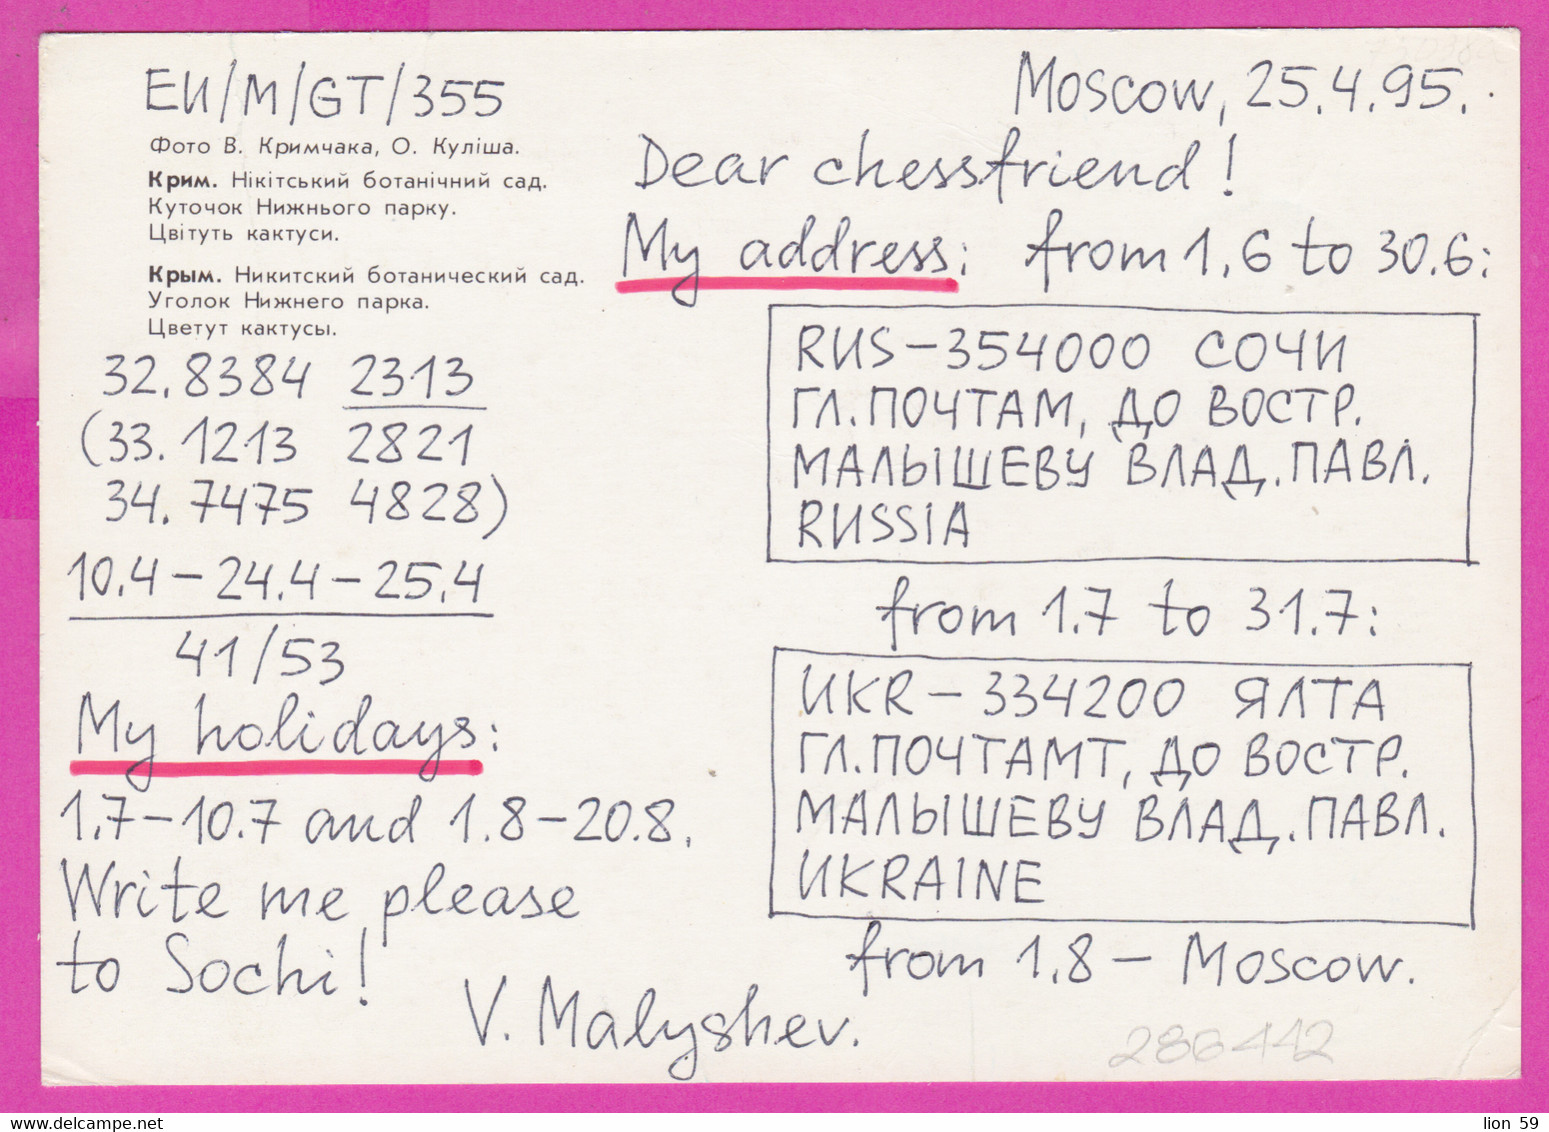 EU/M/GT/355
Фото В. Кримчака, О. Куліша.
Крим. Нікітський ботанічний сад.
Куточок Нижнього парку.
Цвітуть кактуси.
Крым. Никитский ботанический сад.
Уголок Нижнего парка.
Цветут кактусы.
32.8384 2313
(33.1213 2821
34.7475 4828)
10.4-24.4-25.4
41/53
My holidays:
1.7-10.7 and 1.8-20.8.
Write me please
to Sochi!
Moscow, 25.4.95.
Dear chessfriend!
My address: from 1.6 to 30.6:
RUS-354000 СОЧИ
ГЛ.ПОЧТАМ, ДО ВОСТР.
МАЛЫШЕВУ ВЛАД.ПАВЛ.
RUSSIA
from 1.7 to 31.7:
UKR-334200 ЯЛТА
ГЛ.ПОЧТАМТ, ДО ВОСТР.
МАЛЫШЕВУ ВЛАД.ПАВЛ.
UKRAINE
from 1.8 - Moscow.
V. Malyshev.
286442
www.delcampe.net
lion 59